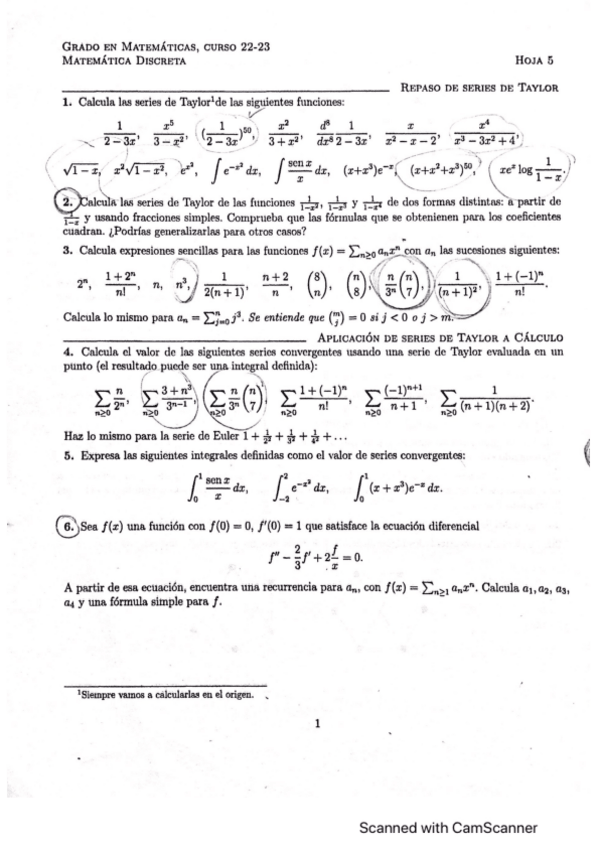 GRADO EN MATEMÁTICAS, CURSO 22-23
MATEMÁTICA DISCRETA HOJA 5
REPASO DE SERIES DE TAYLOR
1. Calcula las series de Taylor¹ de las siguientes funciones:
1/(2 − 3x), x⁵/(3 − x²), (1/(2 − 3x))⁵⁰, x²/(3 + x²), d⁸/dx⁸ 1/(2 − 3x), x/(x² − x − 2), x⁴/(x³ − 3x² + 4),
√(1 − x), x²√(1 − x²), e^(x²), ∫ e^(−x²) dx, ∫ (sen x)/x dx, (x+x³)e^(−x), (x+x²+x³)⁵⁰, xeˣ log 1/(1 − x).
2. Calcula las series de Taylor de las funciones 1/(1−x²), 1/(1−x³) y 1/(1−x⁴) de dos formas distintas: a partir de
1/(1−x) y usando fracciones simples. Comprueba que las fórmulas que se obtienen para los coeficientes
cuadran. ¿Podrías generalizarlas para otros casos?
3. Calcula expresiones sencillas para las funciones f(x) = ∑_{n≥0} aₙxⁿ con aₙ las sucesiones siguientes:
2ⁿ, (1 + 2ⁿ)/n!, n, n³, 1/(2(n + 1)), (n + 2)/n, (8 n), (n 8), n/3ⁿ (n 7), 1/(n + 1)², (1 + (−1)ⁿ)/n!.
Calcula lo mismo para aₙ = ∑_{j=0}^{n} j³. Se entiende que (m j) = 0 si j < 0 o j > m.
APLICACIÓN DE SERIES DE TAYLOR A CÁLCULO
4. Calcula el valor de las siguientes series convergentes usando una serie de Taylor evaluada en un
punto (el resultado puede ser una integral definida):
∑_{n≥0} n/2ⁿ, ∑_{n≥0} (3 + n³)/3ⁿ⁻¹, ∑_{n≥0} n/3ⁿ (n 7), ∑_{n≥0} (1 + (−1)ⁿ)/n!, ∑_{n≥0} (−1)ⁿ⁺¹/(n + 1), ∑_{n≥0} 1/((n + 1)(n + 2)).
Haz lo mismo para la serie de Euler 1 + 1/2² + 1/3² + 1/4² + …
5. Expresa las siguientes integrales definidas como el valor de series convergentes:
∫₀¹ (sen x)/x dx, ∫₋₂² e^(−x²) dx, ∫₀¹ (x + x³)e^(−x) dx.
6. Sea f(x) una función con f(0) = 0, f′(0) = 1 que satisface la ecuación diferencial
f″ − 2/3 f′ + 2 f/x = 0.
A partir de esa ecuación, encuentra una recurrencia para aₙ, con f(x) = ∑_{n≥1} aₙxⁿ. Calcula a₁, a₂, a₃,
a₄ y una fórmula simple para f.
¹Siempre vamos a calcularlas en el origen.
1
Scanned with CamScanner